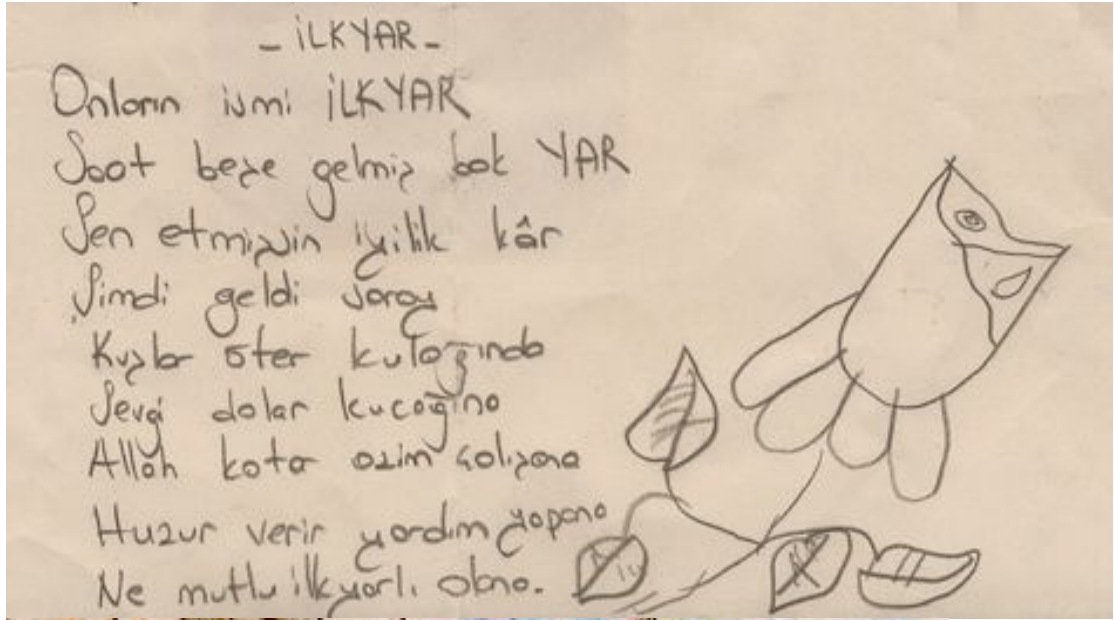 - İLKYAR -
Onların ismi İLKYAR
Saat beşe gelmiş bak YAR
Sen etmişsin iyilik kâr
Şimdi geldi saray
Kuşlar öter kulağında
Sevgi dolar kucağına
Allah katar azim çalışana
Huzur verir yardım yapana
Ne mutlu ilkyarlı olana.